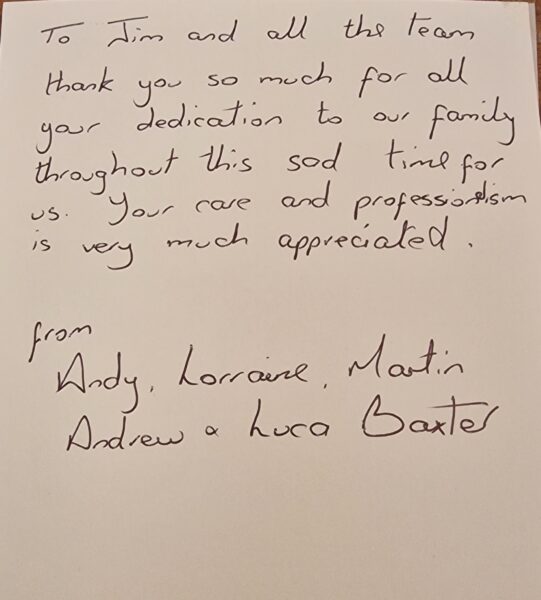 To Jim and all the team
thank you so much for all
your dedication to our family
throughout this sad time for
us. Your care and professionalism
is very much appreciated.
from
Andy, Lorraine, Martin
Andrew & Luca Baxter